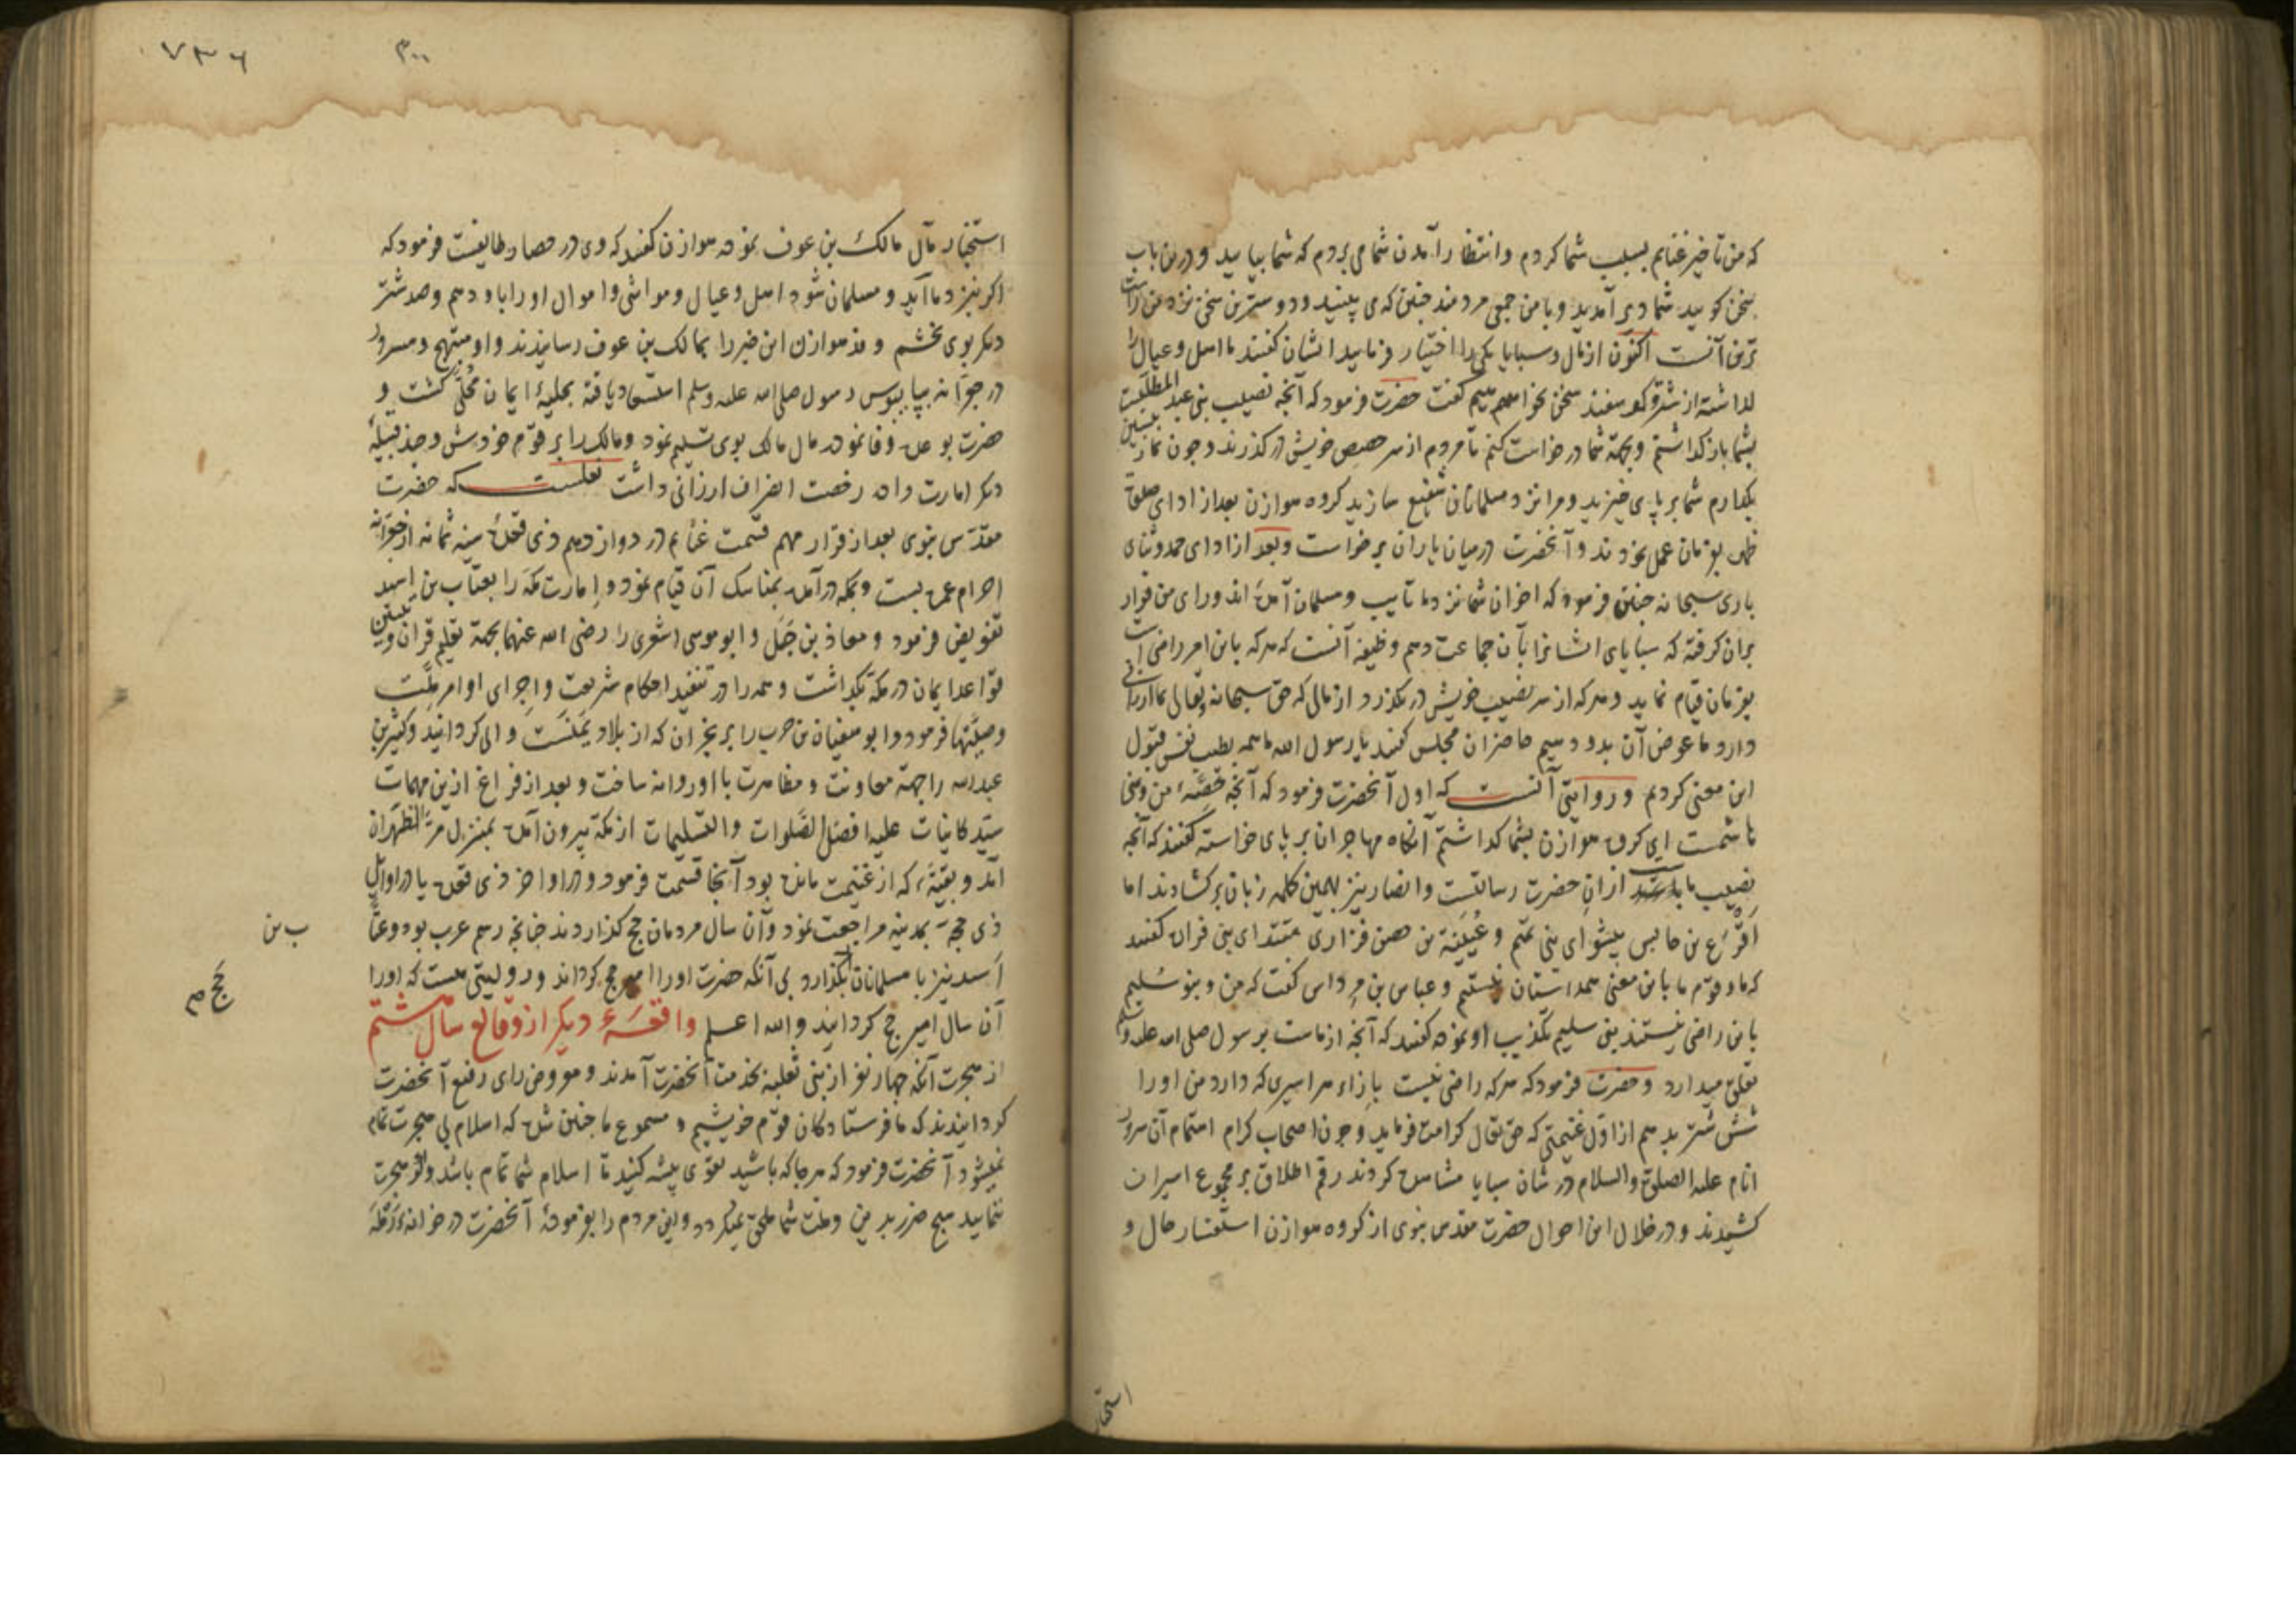 که من تاخیر غنایم بسبب شما کردم و انتظار آمدن شما می بردم که شما بیایید و درین باب
سخن کویید شما دیر آمدید و با من جمعی مردمند چنین که می بینید و دوسترین سخن نزد من راست
ترین آنست اکنون از مال و سبایا یکی را اختیار فرمایید ایشان کفتند ما اهل و عیال را
کذاشته از شتر و کوسفند سخن نخواهیم کفت حضرت فرمود که آنچه نصیب بنی عبد المطلبست
بشما باز کذاشتم و بجهة شما درخواست کنم تا مردم از سر حصص خویش درکذرند و چون نماز پیشین
بکذارم شما بر پای خیزید و مرا نزد مسلمانان شفیع سازید کروه هوازن بعد از ادای صلوة
ظهر بفرمان عمل نمودند و آنحضرت درمیان یاران برخواست و بعد از ادای حمد و ثنای
باری سبحانه چنین فرمود که اخوان شما نزد ما تایب و مسلمان آمده اند و رای من قرار
بران کرفته که سبایای ایشانرا بآن جماعت دهم وظیفه آنست که هرکه باین امر راضی است
بفرمان قیام نماید و هرکه از سر نصیب خویش در نکذرد از مالی که حق سبحانه و تعالی بما ارزانی
دارد ما عوض آن بدو دهیم حاضران مجلس کفتند یا رسول الله ما همه بطیب نفس قبول
این معنی کردیم و روایتی آنست که اول آنحضرت فرمود که آنچه حصهٔ من و بنی
هاشمست ای کروه هوازن بشما کذاشتم آنکاه مهاجران بر پای خواسته کفتند که آنچه
نصیب ماست از ان حضرت رسالتست و انصار نیز بهمین کلمه زبان برکشادند اما
اقرع بن حابس پیشوای بنی تمیم و عیینة بن حصن فزاری مقتدای بنی فزاره کفتند
که ما و قوم ما باین معنی همداستان نیستیم و عباس بن مرداس کفت که من و بنو سلیم
باین راضی نیستند بنی سلیم تکذیب او نموده کفتند که آنچه از ماست برسول صلی الله علیه وسلم
تعلق میدارد و حضرت فرمود که هرکه راضی نیست بازاء هر اسیری که دارد من او را
شش شتر بدهم از اول غنیمتی که حق تعالی کرامت فرماید و چون اصحاب کرام اهتمام آن سرور
انام علیه الصلوة والسلام در شان سبایا مشاهده کردند رقم اطلاق بر مجموع اسیران
کشیدند و در خلال این احوال حضرت مقدس نبوی از کروه هوازن استفسار حال و
استخبار
۷۳۶
۳۰۰
استخبار مآل مالک بن عوف نموده هوازن کفتند که وی در حصار طایفست فرمود که
اکر نیز د ما آید و مسلمان شود اهل و عیال و مواشی و اموال او را باو دهم و صد شتر
دیکر بوی بخشم وفد هوازن این خبر را بمالک بن عوف رسانیدند و او مبتهج و مسرور
در جعرانه بپایبوس رسول صلی الله علیه وسلم استسعاد یافته بحلیهٔ ایمان محلی کشت و
حضرت بوعده وفا نموده مال مالک بوی تسلیم نمود و مالک را بر قوم خودش و چند قبیلهٔ
دیکر امارت داده رخصت انصراف ارزانی داشت نقلست که حضرت
مقدس نبوی بعد از قرار مهم قسمت غنایم در دوازدهم ذی قعدهٔ سنه ثمانه از جعرانه
احرام عمره بست و بمکه درآمده بمناسک آن قیام نمود و امارت مکه را بعتاب بن اسید
تفویض فرمود و معاذ بن جبل و ابو موسی اشعری را رضی الله عنهما بجهة تعلیم قرآن و تلقین
قواعد ایمان در مکه بکذاشت و همه را در تنفیذ احکام شریعت و اجرای اوامر ملت
وصیتها فرمود و ابو سفیان بن حرب را بر نجران که از بلاد یمنست والی کردانید و کثیر بن
عبدالله را جهة معاونت و مظاهرت با او روانه ساخت و بعد از فراغ ازین مهمات
سید کاینات علیه افضل الصلوات والتسلیمات از مکه بیرون آمده بمنزل مر الظهران
آمد و بقیهٔ که از غنیمت مانده بود آنجا قسمت فرمود و در اواخر ذی قعده یا در اوایل
ذی حجه بمدینه مراجعت نمود و آن سال مردمان حج کذاردند چنانچه رسم عرب بود و عتا
ب بن
اسید نیز با مسلمانان حج بکذارد بی آنکه حضرت او را امیر حج کرداند و روایتی هست که او را
حج م
آن سال امیر حج کردانید والله اعلم واقعهٔ دیکر از وقایع سال هشتم
از هجرت آنکه چهار نفر از بنی ثعلبه بخدمت آنحضرت آمدند و معروض رای رفیع آنحضرت
کردانیدند که ما فرستادکان قوم خویشیم و مسموع ما چنین شده که اسلام بی هجرت تمام
نمیشود آنحضرت فرمود که هرجا که باشید تقوی پیشه کنید تا اسلام شما تمام باشد و اکر هجرت
ننمایید هیچ ضرر بدین و ملت شما ملحق نمیکردد و این مردم را بفرمودهٔ آنحضرت در خانهٔ رمله